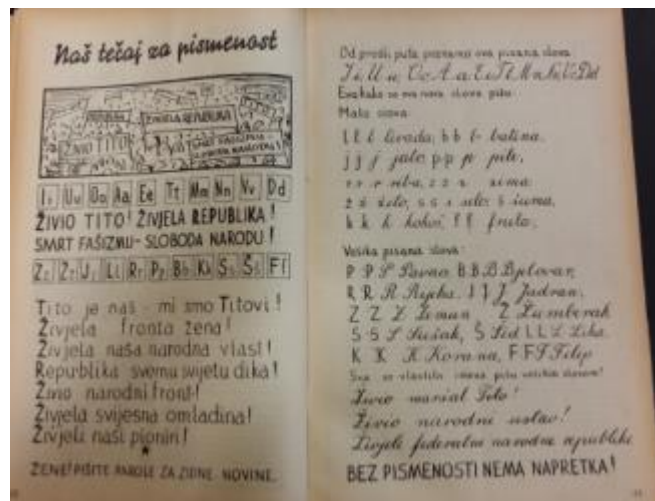 Naš tečaj za pismenost
ŽIVJELA REPUBLIKA
ŽIVIO TITO
SMRT FAŠIZMU
SLOBODA NARODU!
Ii Uu Oo Aa Ee Tt Mm Nn Vv Dd
ŽIVIO TITO! ŽIVJELA REPUBLIKA!
SMRT FAŠIZMU - SLOBODA NARODU!
Zz Žž Jj Ll Rr Pp Bb Kk Ss Šš Ff
Tito je naš - mi smo Titovi!
Živjela fronta žena!
Živjela naša narodna vlast!
Republika svemu svijetu dika!
Živio narodni front!
Živjela svijesna omladina!
Živjeli naši pionin!
ŽENE! PIŠITE PAROLE ZA ZIDNE NOVINE.
Od prošli puta poznamo ova pisana slova
Ii Uu Oo Aa Ee Tt Mm Nn Vv Dd
Evo kako se ova nova slova pišu:
Mala slova:
l l l livada, b b b batina,
j j j jaje, p p p pile,
r r r riba, z z z zima
ž ž želo, s s s selo, š šuma,
k k k kokoš, f f fruta,
Velika pisana slova:
P P P Pavao B B B Bjelovar,
R R R Rijeka, J J J Jadran,
Z Z Z Zeman Ž Žumberak
S S S Sušak, Š Šid L L L Lika
K K K Korana, F F F Filip
Sva se vlastita imena pišu velikim slovom!
Živio maršal Tito!
Živio narodni ustav!
Živjele federalne narodne republike
BEZ PISMENOSTI NEMA NAPRETKA!